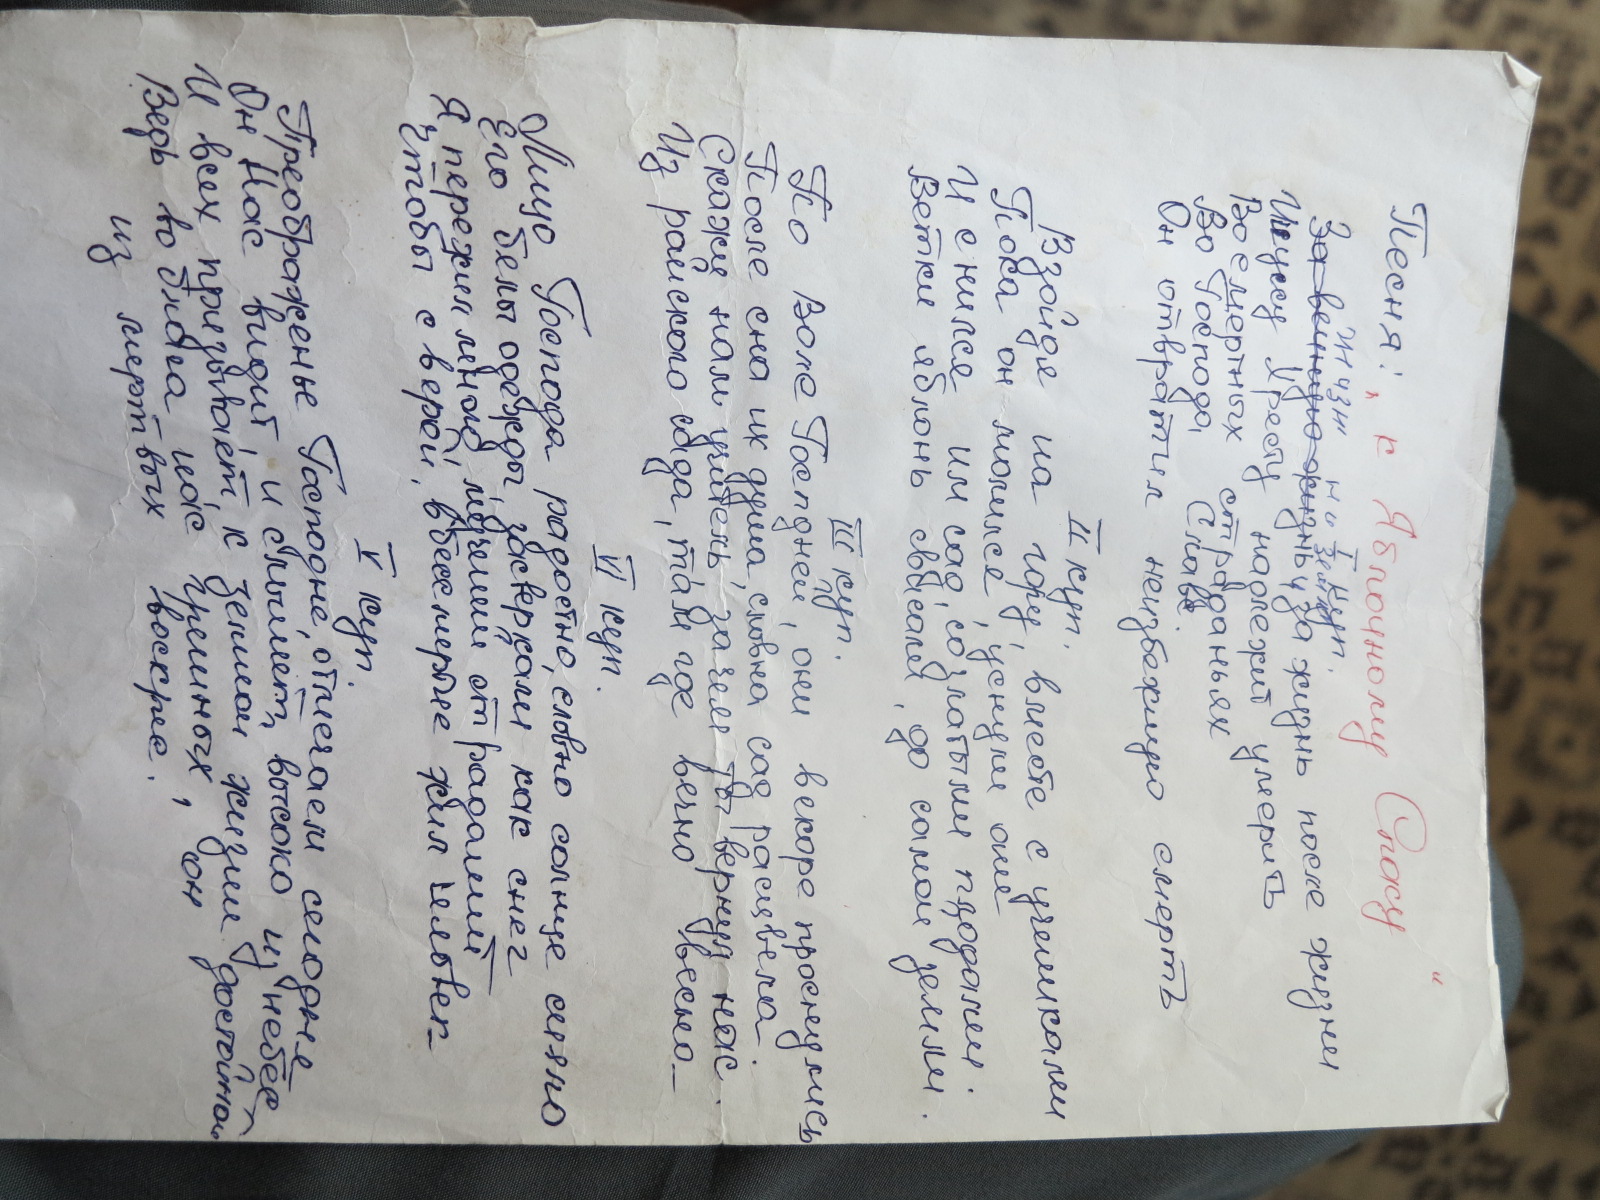 Песня: „к Яблочному Спасу“
I куп.
жизни на земле
За вечную жизнь, за жизнь после жизни
Иисусу Христу надлежит умереть
Во смертных страданьях
Во Господа Славе.
Он отвратил неизбежную смерть
II куп.
Взойдя на гору, вместе с учениками
Пока он молился, уснули оне
И снился им сад, созлатыми плодами.
Ветки яблонь свисали, до самой земли.
III куп.
По воле Господней, они вскоре проснулись
После сна их душа, словна сад расцвела.
Скажи нам учитель, зачем ты вернул нас.
Из райского сада, там где вечно весна_
IV куп.
Лицо Господа радостно, словно солнце сияло
Его белы одежды засверкали как снег
Я пережил леной мучении от радалей
Чтобы с верой, вбессмертие жил человек_
V куп.
Преображенье Господне, отмечаем сегодне
Он Нас видит и слышет, высоко из небес
И всех призывает, к земной жизни достойной
Ведь во благо нас грешных, он
из мертвых воскрес.